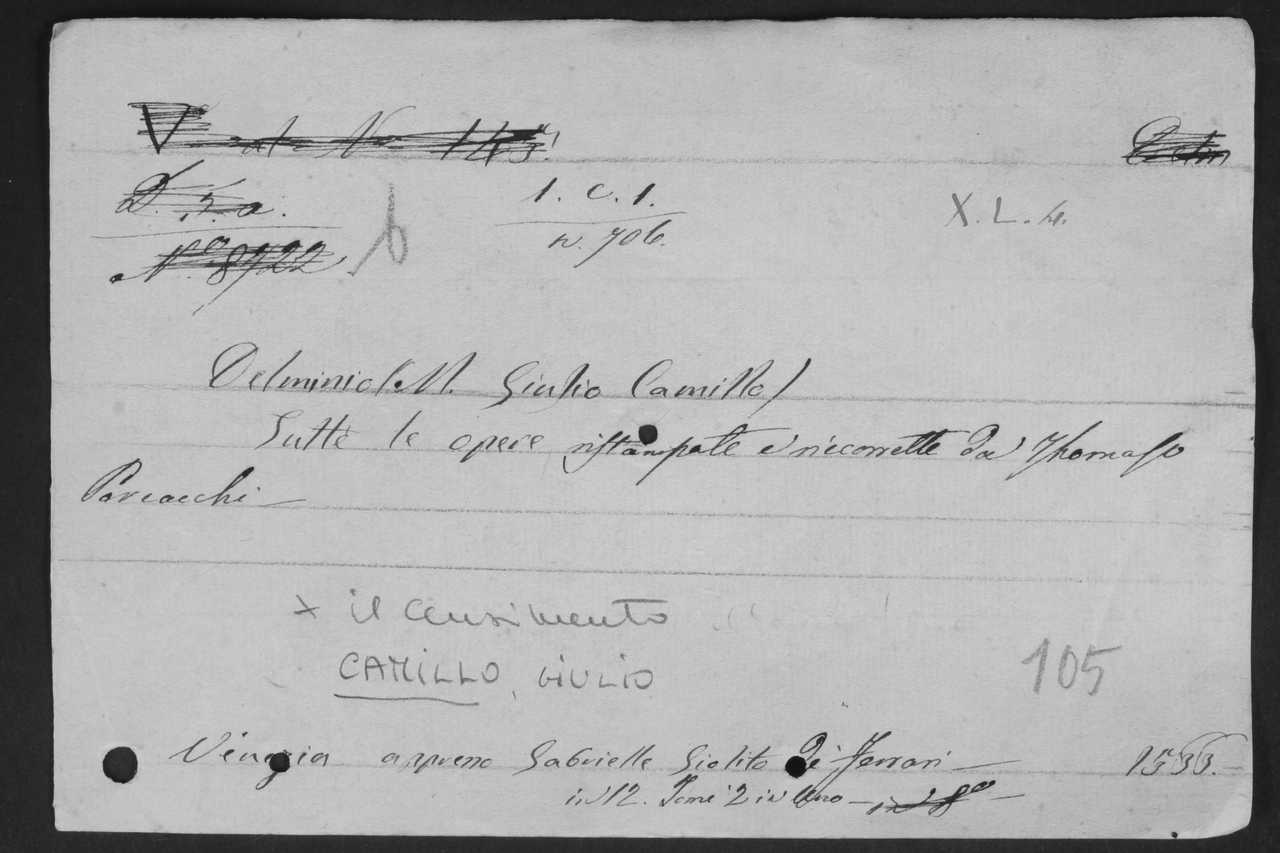 N. 145.
D. 5. a.
N.º 8722
b
1. C. 1.
n. 706.
X. L. 4.
Delminio (M. Giulio Camillo)
Tutte le opere ristampate e ricorrette da Thomaso
Porcacchi
x il censimento
CAMILLO, GIULIO
105
Venezia appreso Gabrielle Giolito de Ferrari 1533.
in 12. Tomi 2 in uno in 8º